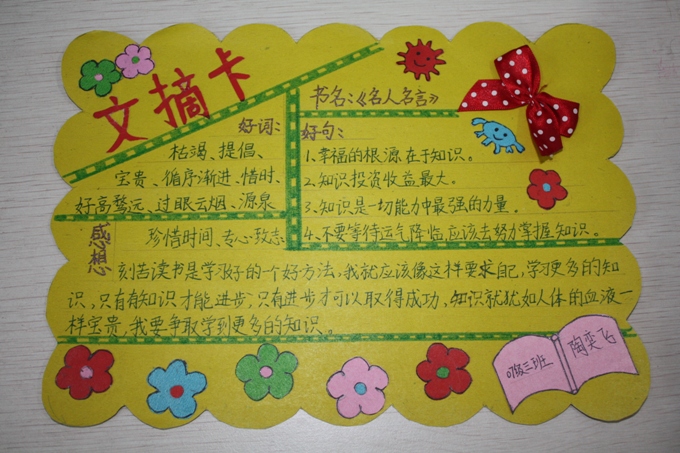 文摘卡
书名:《名人名言》
好词:
枯竭、提倡、
宝贵、循序渐进、惜时、
好高骛远、过眼云烟、源泉
珍惜时间、专心致志
好句:
1.幸福的根源在于知识。
2.知识投资收益最大。
3.知识是一切能力中最强的力量。
4.不要等待运气降临,应该去努力掌握知识。
心得感
刻苦读书是学习好的一个好方法,我就应该像这样要求自己,学习更多的知
识,只有有知识才能进步,只有进步才可以取得成功,知识就犹如人体的血液一
样宝贵,我要争取学到更多的知识。
07级三班
陶奕飞